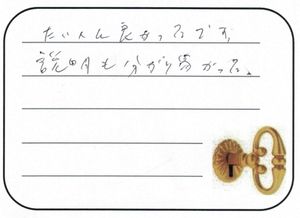 たいへん良かったです。
説明も分かり易かった。